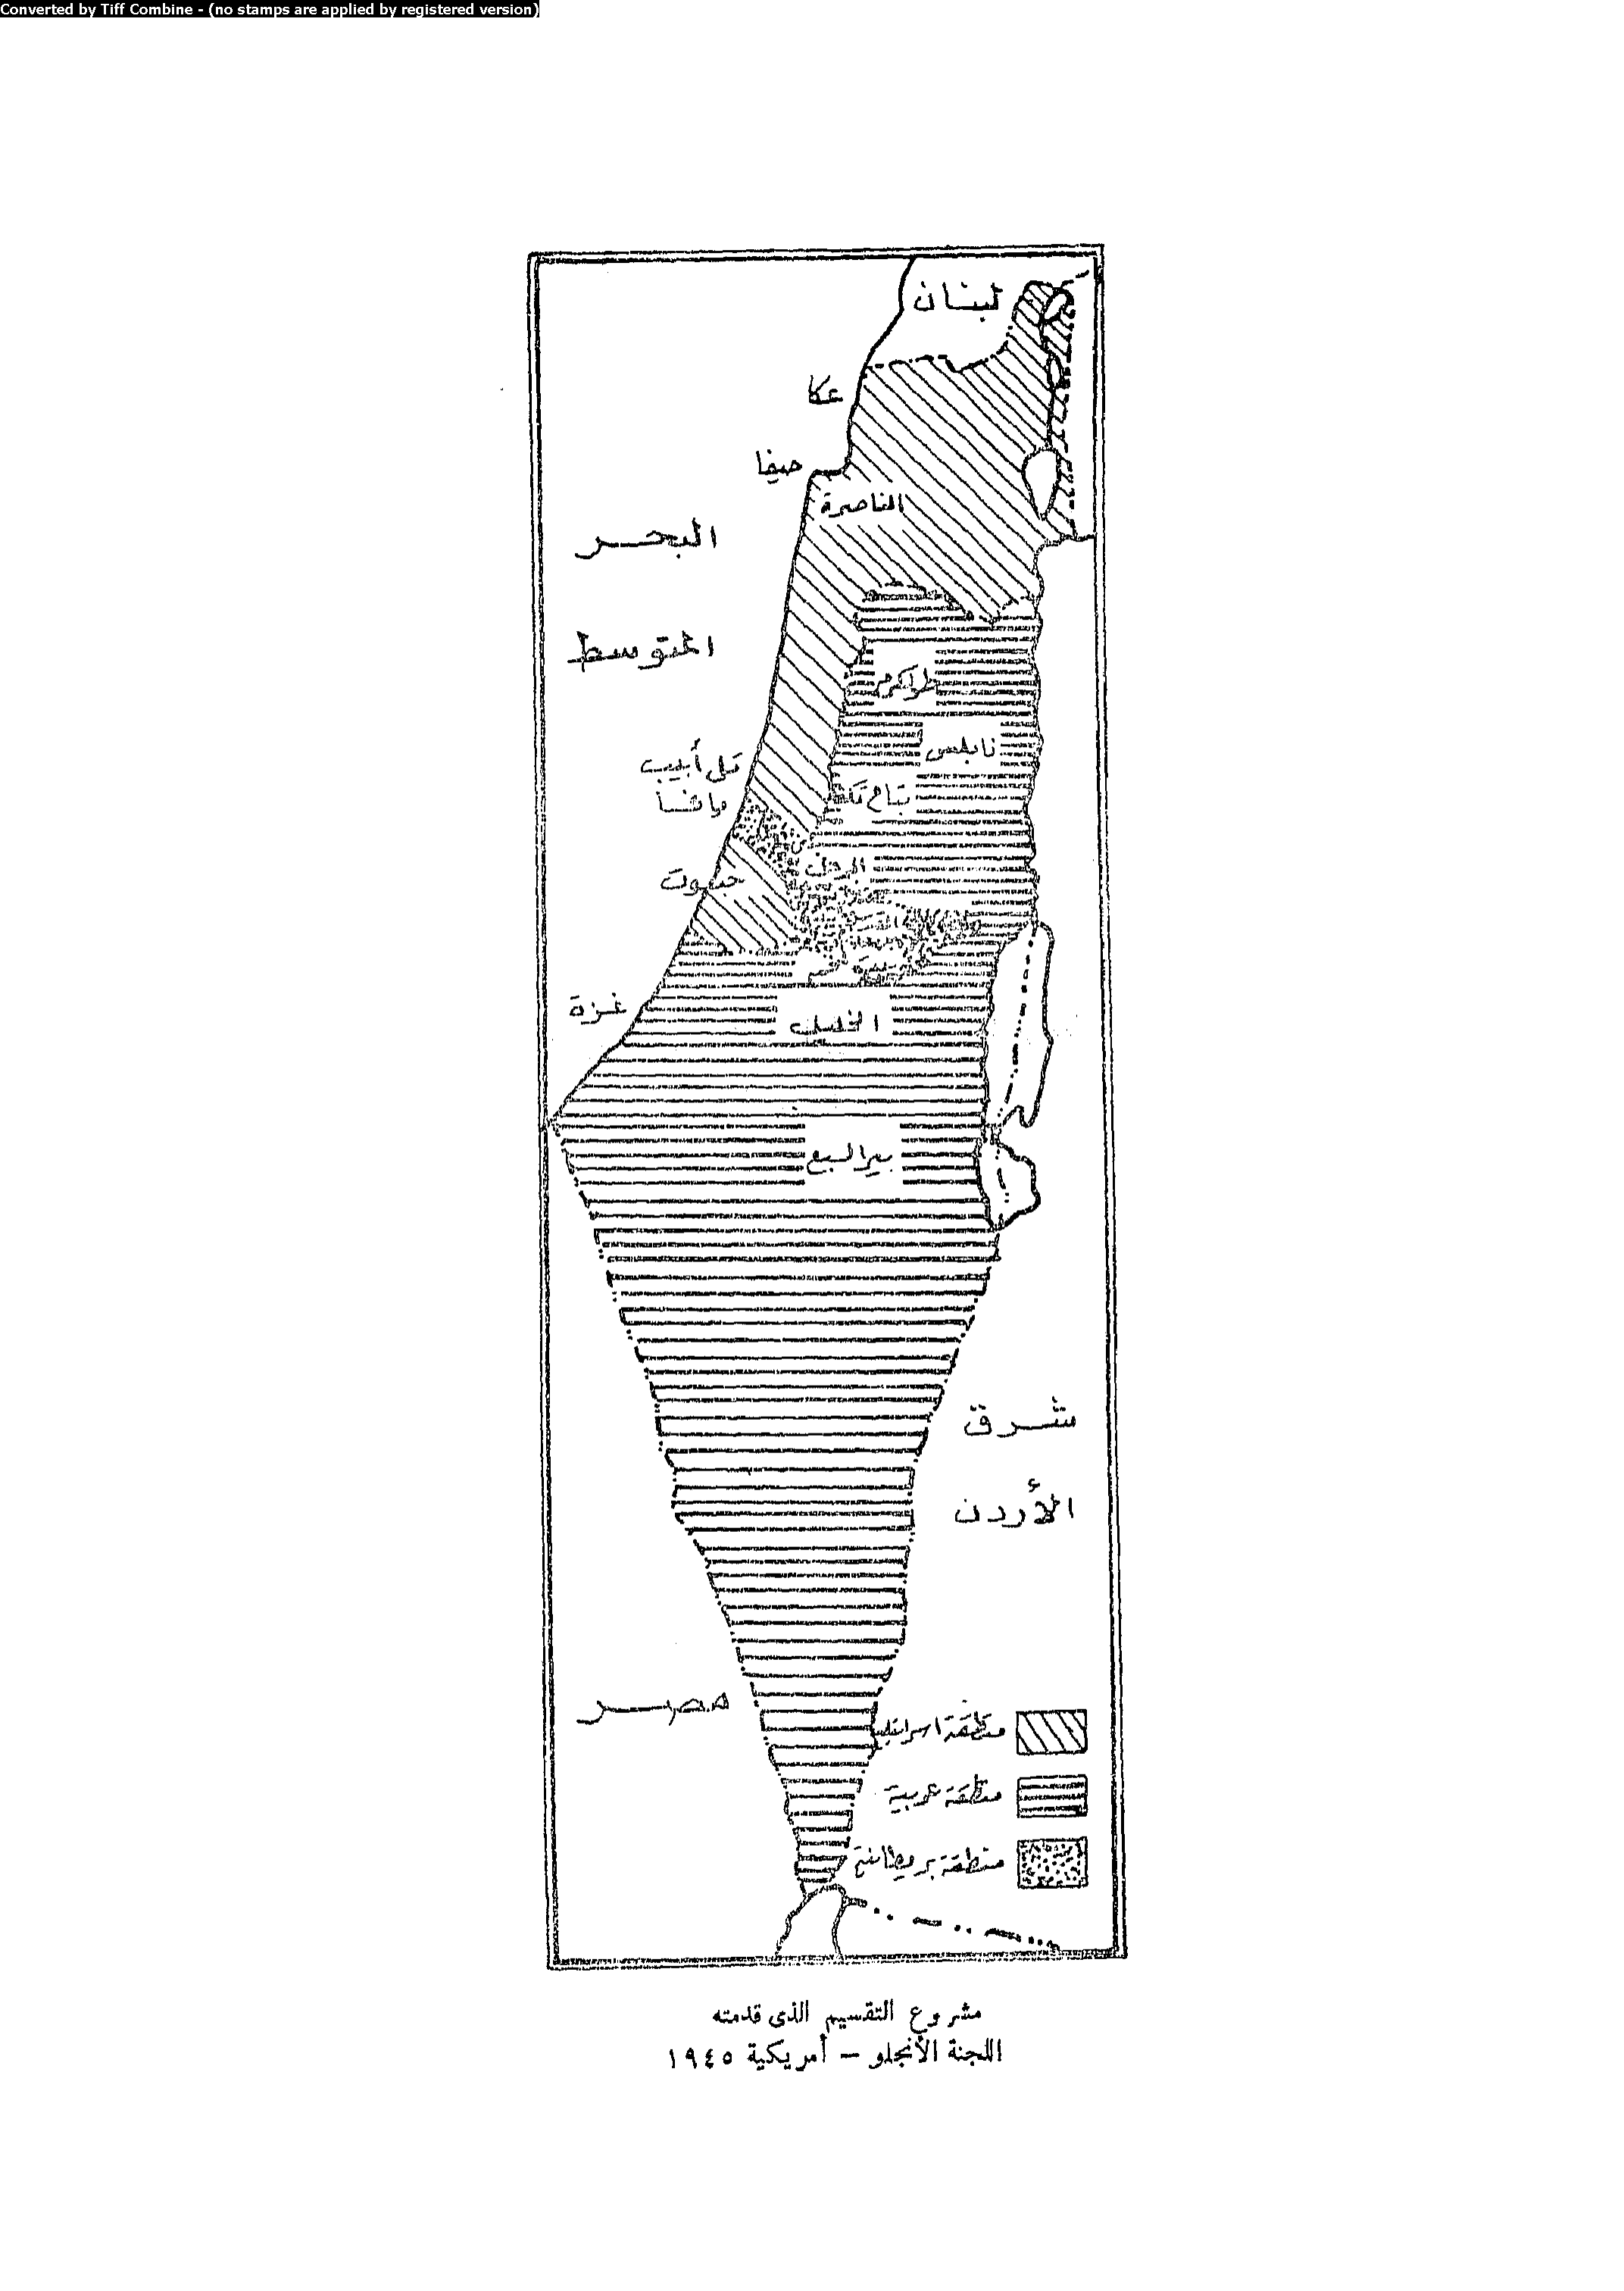 Converted by Tiff Combine - (no stamps are applied by registered version)
لبنان
عكا
حيفا
الناصرة
البحر
المتوسط
طولكرم
نابلس
تل أبيب
ويافا
بتاح تكفا
غزة
الخليل
بير السبع
شرق
الأردن
مصر
منطقة اسرائيلية
منطقة عربية
منطقة بريطانية
مشروع التقسيم الذى قدمته
اللجنة الأنجلو – أمريكية ١٩٤٥